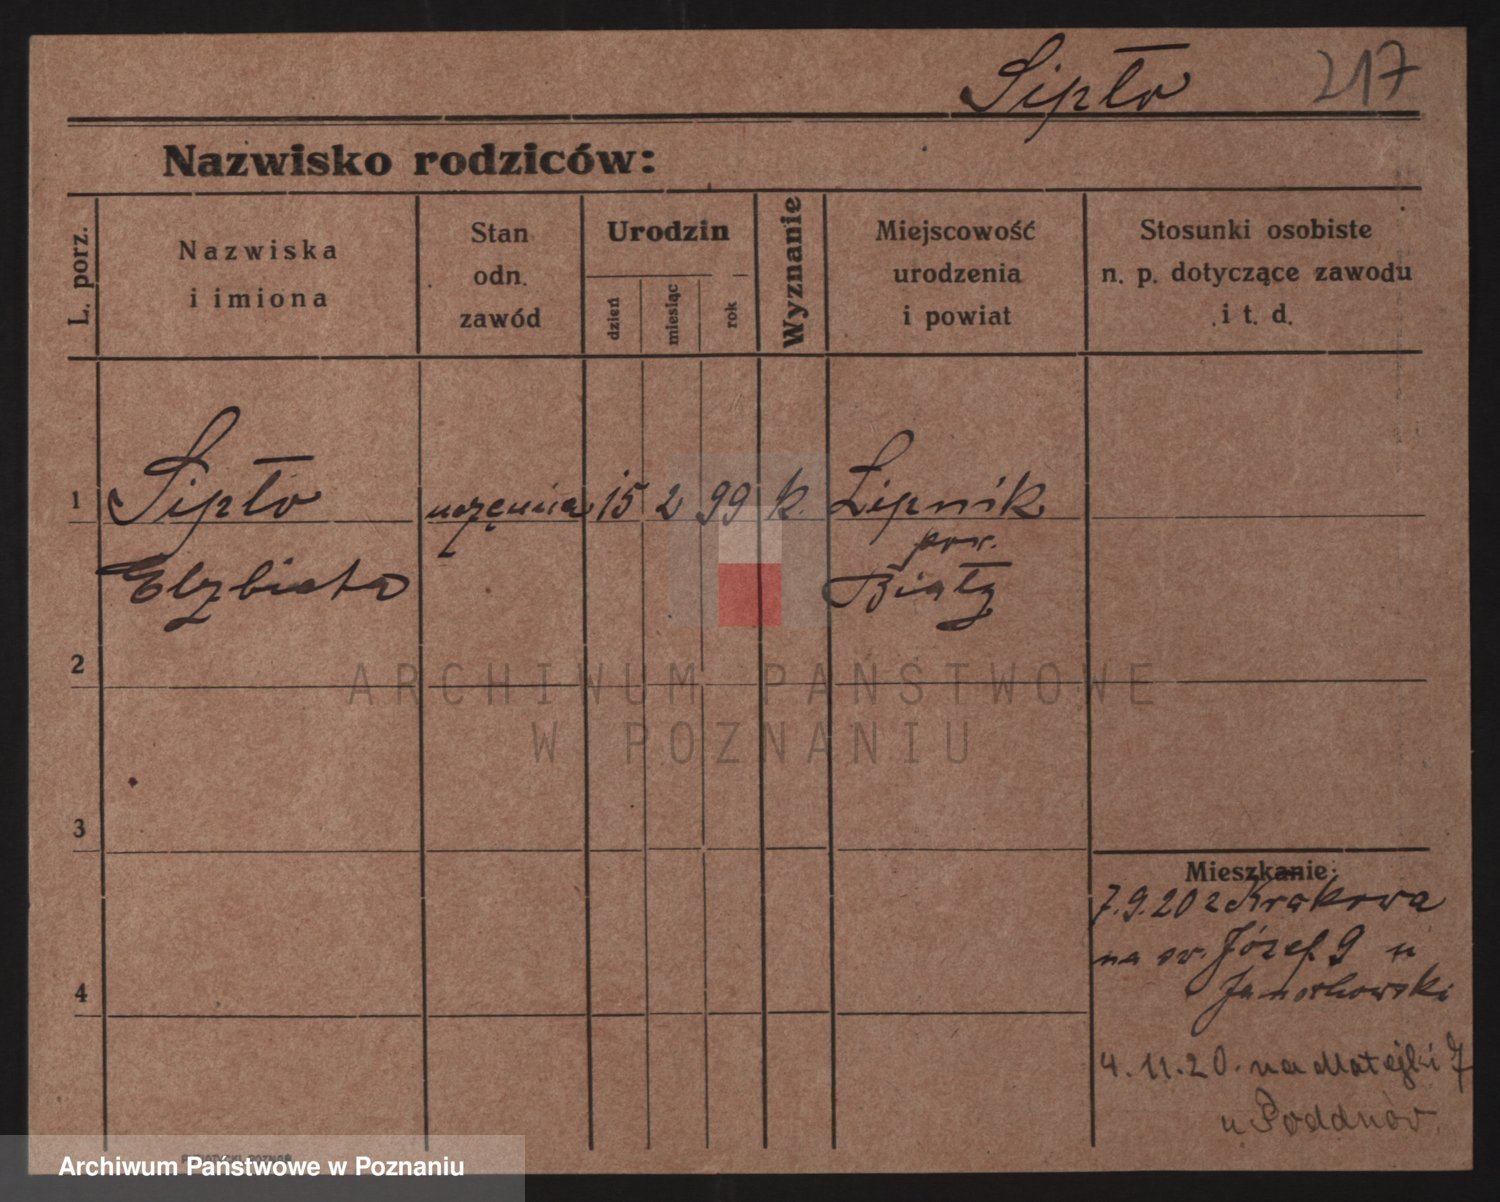 Sipło 217
Nazwisko rodziców:
L. porz.
Nazwiska
i imiona
Stan
odn.
zawód
Urodzin
dzień
miesiąc
rok
Wyznanie
Miejscowość
urodzenia
i powiat
Stosunki osobiste
n. p. dotyczące zawodu
i t. d.
1 Sipło uczęnica 15 2 99 k. Lipnik
pow.
Elzbieta Biały
2
ARCHIWUM PAŃSTWOWE
W POZNANIU
3
Mieszkanie:
7.9.20 z Krakowa
na św. Józef. 9 u
4
4.11.20. na Matejki 7
u
Archiwum Państwowe w Poznaniu